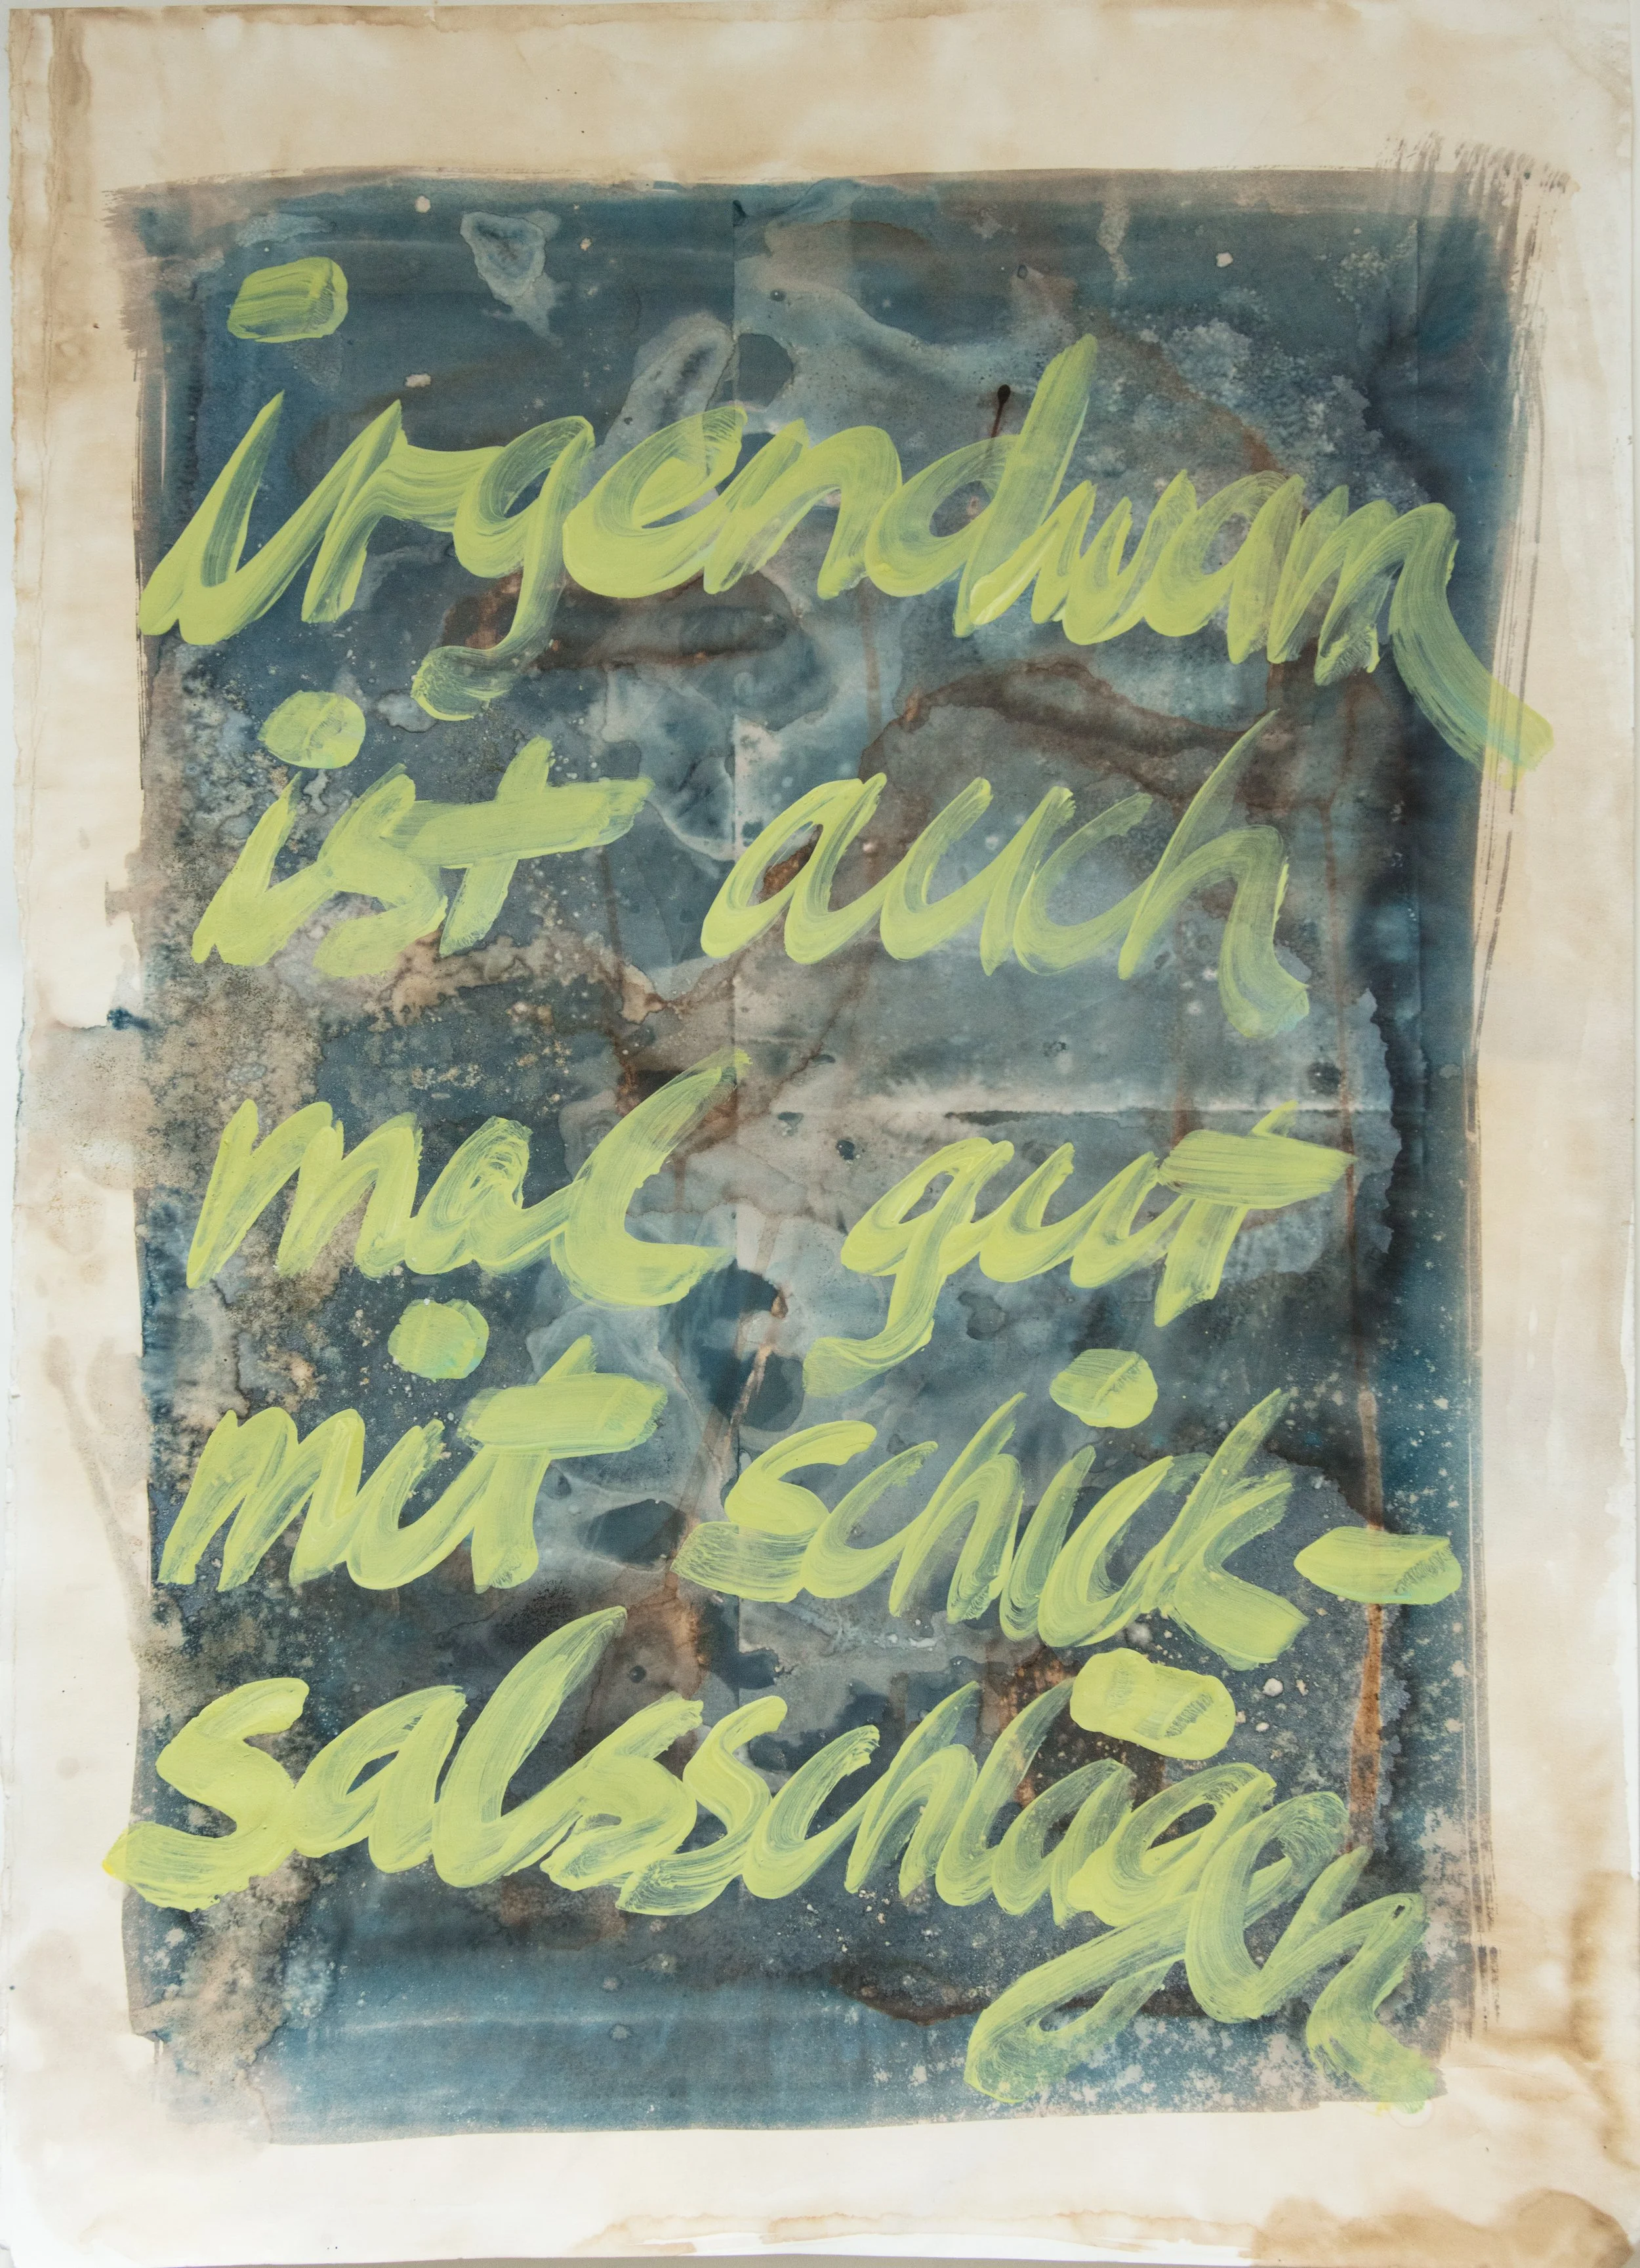 irgendwann
ist auch
mal gut
mit schick-
salsschlägen